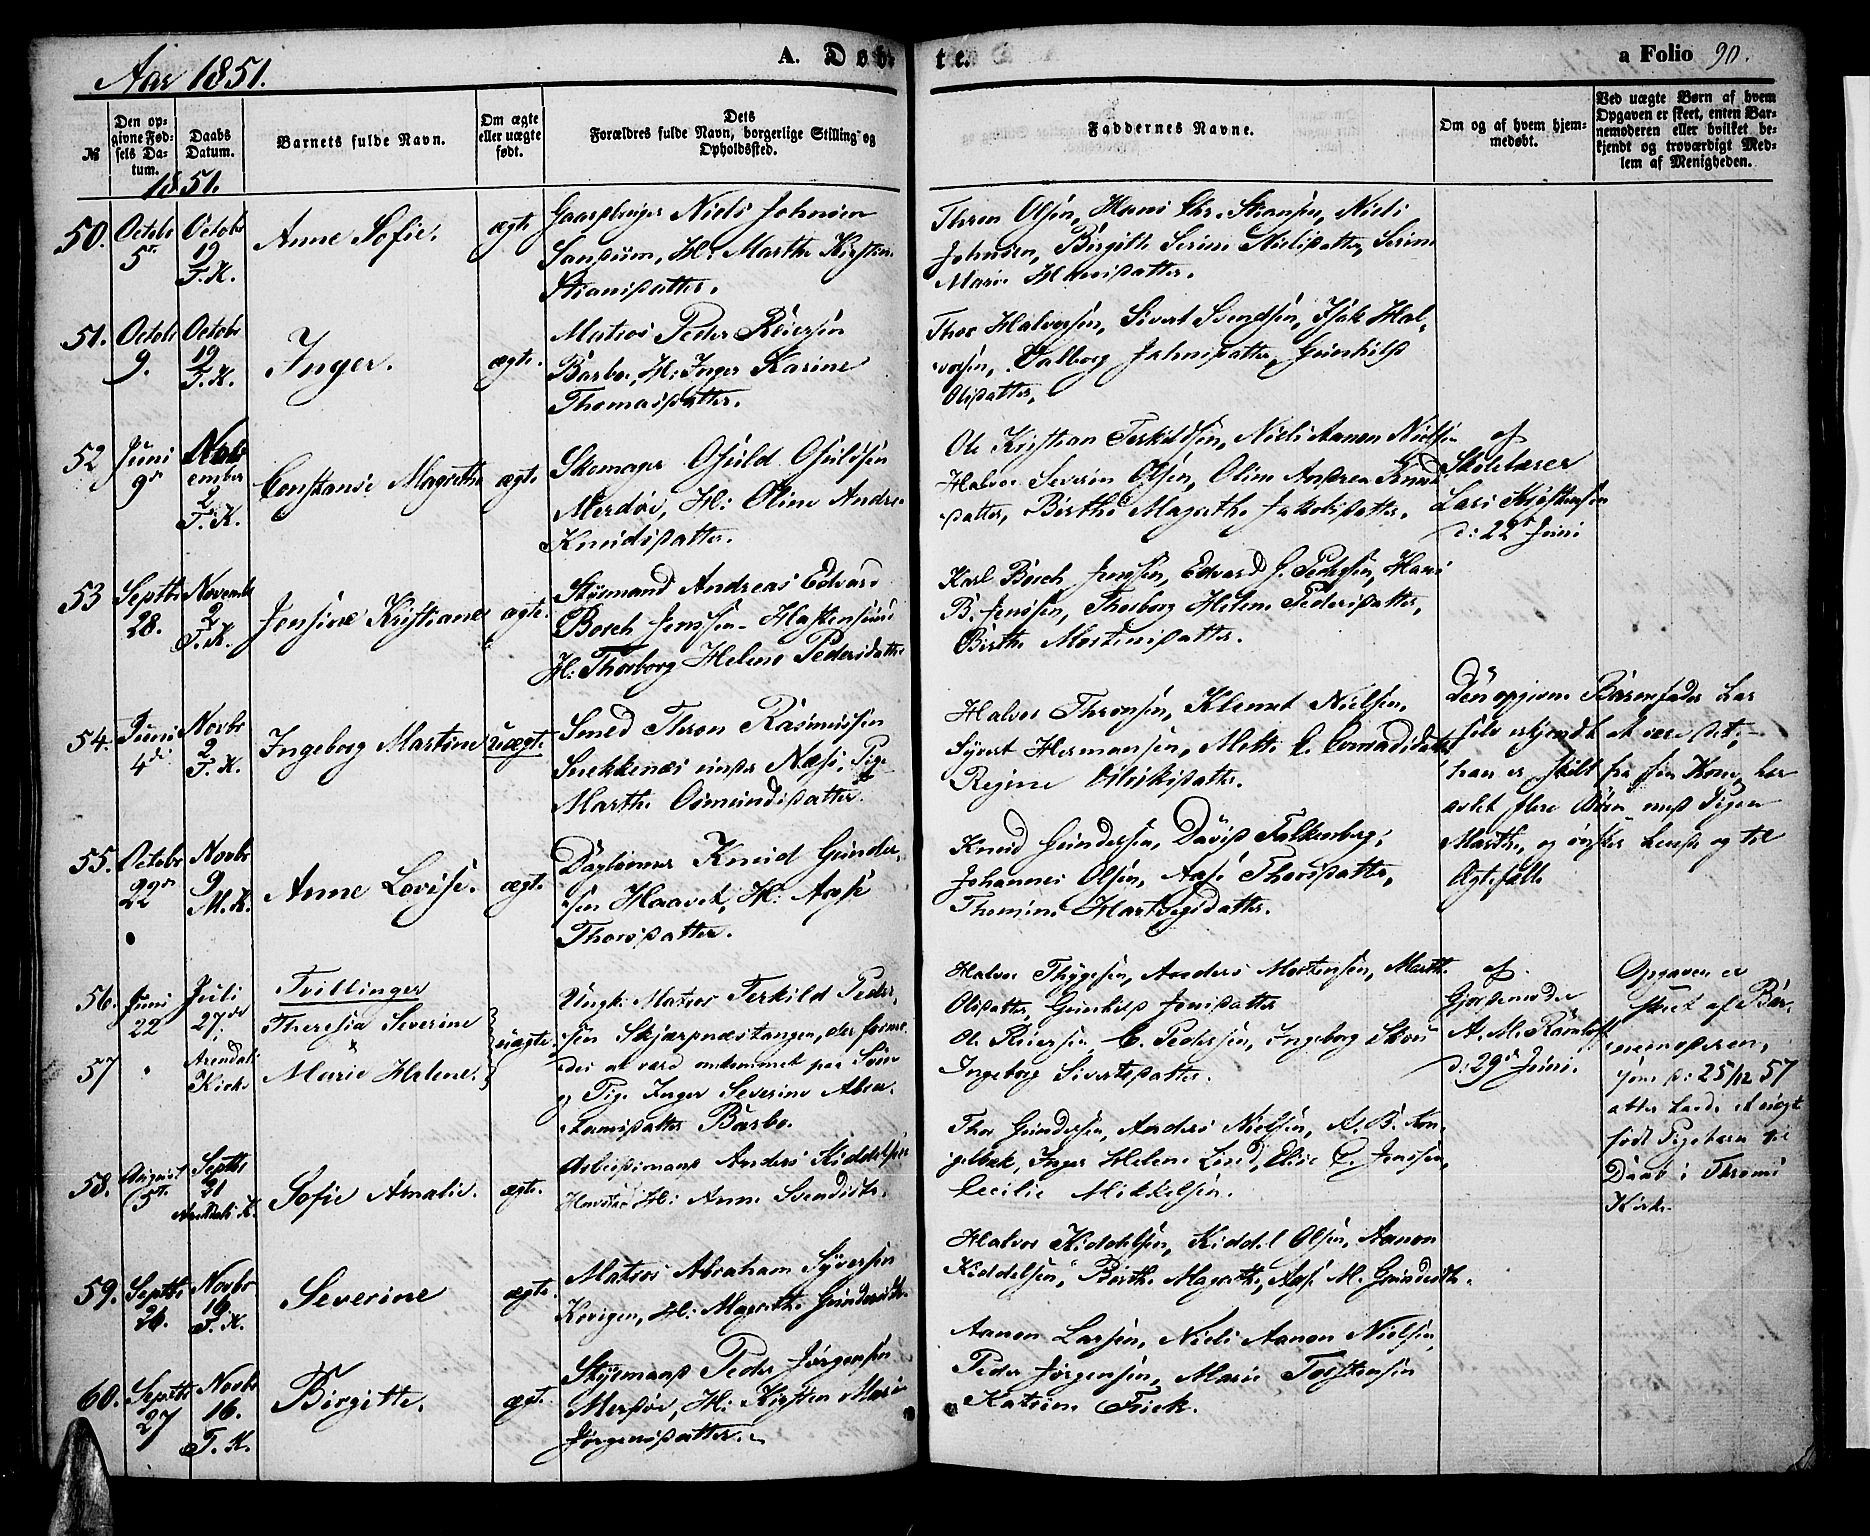 Aar 1851.
A. Døb-
te.
a Folio 90.
№
Den op-
givne Fød-
sels Da-
tum.
Daabs
Datum.
Barnets fulde Navn.
Om ægte
eller uægte
født.
Dets
Forældres fulde Navn, borgerlige Stilling og
Opholdssted.
Faddernes Navne.
Om og af hvem hjem-
medøbt.
Ved uægte Børn af hvem
Opgaven er skeet, enten Bar-
nemoderen eller hvilket be-
kjendt og troværdigt Med-
lem af Menigheden.
1851.
50.
Octob
5te
Octobr
19
T. K.
Anne Sofie.
ægte
Gaardbruger Niels Johnsen
Sandum, H: Marthe Kirstine
Stiansdatter.
Thron Olsen, Hans Chr. Stiansen, Niels
Johnsen, Birgitte Serine Nielsdatter, Serine
Marie Hansdatter.
51.
Octob
9.
Octob
19
T. K.
Inger.
ægte.
Matros Peder Reiersen
Barbo, H: Inger Karine
Thomasdatter.
Thor Halvorsen, Sivert Svendsen, Isak Hal-
vorsen, Valborg Johnsdatter, Gunhild
Olsdatter,
52
Juni
9de
Nov
ember
2
T. K.
Constanse Magrethe
ægte.
Skomager Osuld Osuldsen
Merdøe, H: Oline Andrea
Knudsdatter.
Ole Kristian Terkildsen, Niels Aanon Nielsen
Halvor Severin Olsen, Oline Andrea Knuds
datter, Birthe Magrethe Jakobsdatter.
af
Skolelærer
Lars Kristensen
d: 22de Juni
53
Septbr
28.
Novembr
2
T. K.
Jensine Kristiane
ægte.
Styrmand Andreas Edvard
Boech Jenssen Hastensund
H: Thorborg Helene Pedersdatter
Karl Boech Jenssen, Edvard J. Pedersen, Hans
B. Jenssen, Thorborg Helene Pedersdatter,
Birthe Mortensdatter.
54.
Juni
4de
Novbr
2
T. K.
Ingeborg Martine
uægte.
Smed Thron Rasmussen
Snekkenes under Næs, Pige
Marthe Osmundsdatter.
Halvor Thronsen, Klemet Nielsen,
Syvert Hermansen, Mette C. Conradsdatter
Regine Osuldsdatter.
Den opgivne Barnefader har
selv erkjendt at være det,
han er skilt fra sin Kone, har
avlet flere Børn med Pigen
Marthe, og ønsker hende og til
Ægtefælle
55.
Octobr
22de
Novbr
9
M. K.
Anne Lovise.
ægte.
Daglønner Knud Gunder-
sen Haavet, H: Aase
Thorsdatter.
Knud Gundersen, David Falkenberg,
Johannes Olsen, Aase Thorsdatter,
Thomine Hartvigsdatter.
56.
Juni
22
Juli
27de
Tvillinger
Theresia Severine
&
57
"
Arendals
Kirke
Marie Helene.
uægte.
Ungk: Matros Terkild Peder-
sen Skjærpnæstangen, der forme-
des at være omkommet paa Søen
og Pige Inger Severine Abra-
hamsdatter Barbo.
Halvor Thygesen, Anders Mortensen, Marthe
Olsdatter, Gunhild Jensdatter
O. Reiersen, C. Pedersen, Ingeborg Skou
Ingeborg Sivertsdatter.
af
Gjordemoder
A. M. Ramløff
d: 29de Juni.
Opgaven er
skeet af Bar-
nemoderen,
som d: 25/12 57
atter havde et uægte
født Pigebarn til
Daab i Thromø
Kirke.
58.
August
15de
Septbr
21
Arendals K.
Sofie Amalie.
ægte.
Arbeidsmand Anders Kiddelsen
Havstad H: Anne Svendsdtr.
Thor Gundersen, Anders Nielsen, A. B. Aon-
gelbek, Inger Helene Lind, Elise C. Jenssen,
Cecilie Mikkelsen.
59.
Septbr
26.
Novbr
16
T. K.
Severine
ægte.
Matros Abraham Syversen
Kovigen, H: Magrethe Gundersdtr.
Halvor Kiddelsen, Kiddel Olsen, Aanon
Kiddelsen, Birthe Magrethe, Aase M. Gundersdtr.
60.
Septbr
27
Novbr
16.
T. K.
Birgitte.
ægte.
Styrmand Peder Jørgensen
Merdøe, H: Kirsten Marie
Jørgensdatter.
Aanon Larsen, Niels Aanon Nielsen,
Peder Jørgensen, Marie Torstensen
Katrine Friek.